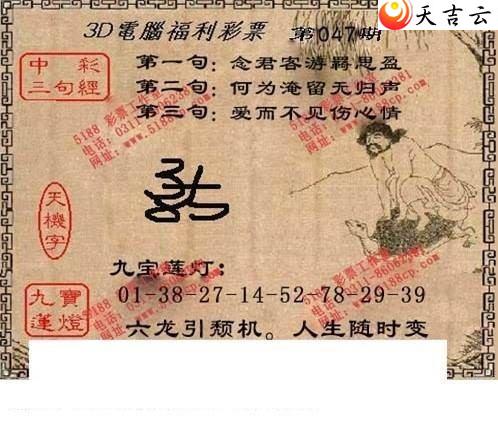 天吉云
3D電腦福利彩票 第047期
中彩
三句經
第一句：念君客游羁思盈
第二句：何为淹留无归声
第三句：爱而不见伤心情
5188 彩票工作室
网址：www.5188cp.com
天機字
九宝莲灯：
九寶
蓮燈
01-38-27-14-52.78-29-39
六龙引颓机。人生随时变